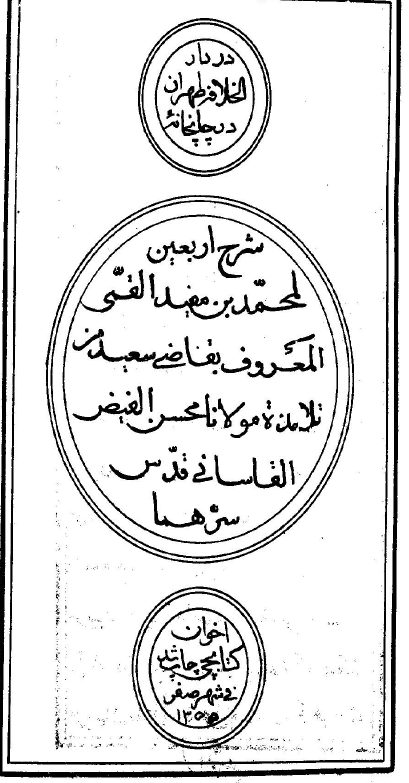 در دار
الخلافه طهران
در چاپخانهٔ
شرح اربعین
لمحمّد بن مفید القمّی
المعروف بقاضی سعید من
تلامذة مولانا محسن الفیض
القاسانی قدّس
سرّهما
اخوان
کتابچی چاپ شد
فی شهر صفر